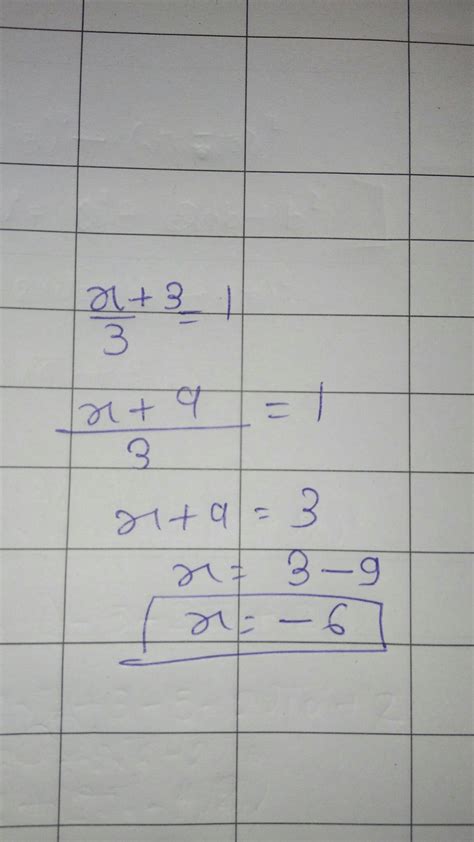 x/3 + 3 = 1
(x + 9)/3 = 1
x + 9 = 3
x = 3 - 9
x = - 6